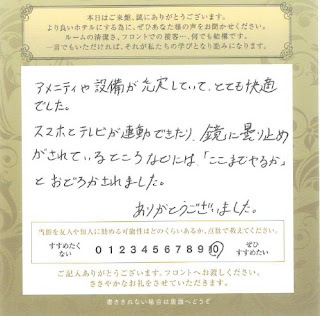 本日はご来館、誠にありがとうございます。
より良いホテルにする為に、ぜひあなた様の声をお聞かせください。
ルームの清潔さ、フロントでの接客…、何でも結構です。
一言でもいただければ、それが私たちの学びとなり励みになります。
アメニティや設備が充実していて、とても快適
でした。
スマホとテレビが連動できたり、鏡に曇り止め
がされているところなどには、「ここまでやるか」
とおどろかされました。
ありがとうございました。
当館を友人や知人に勧める可能性はどのくらいあるか、点数で教えてください。
すすめたく
ない
0 1 2 3 4 5 6 7 8 9 10
ぜひ
すすめたい
ご記入ありがとうございます。フロントへお渡しください。
ささやかなお礼をさせていただきます。
書ききれない場合は裏面へどうぞ